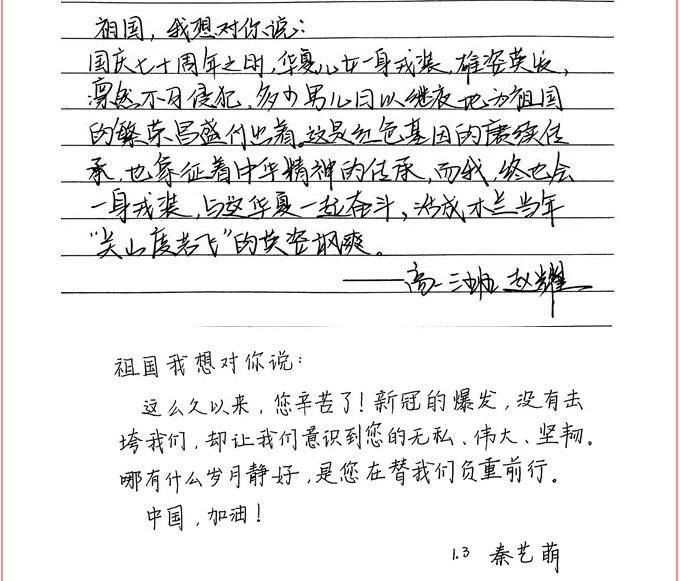 祖国，我想对你说：
国庆七十周年之时，华夏儿女一身戎装，雄姿英发，
凛然不可侵犯，多少男儿日以继夜地为祖国
的繁荣昌盛付出着。这是红色基因的赓续传
承，也象征着中华精神的传承，而我，终也会
一身戎装，与这华夏一起奋斗，活成木兰当年
“关山度若飞”的英姿飒爽。
——高一 赵耀
祖国我想对你说：
这么久以来，您辛苦了！新冠的爆发，没有击
垮我们，却让我们意识到您的无私、伟大、坚韧。
哪有什么岁月静好，是您在替我们负重前行。
中国，加油！
1.3 秦艺萌